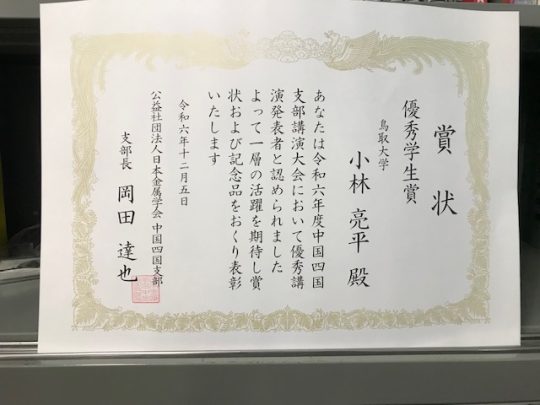 賞状
優秀学生賞
鳥取大学
小林 亮平 殿
あなたは令和六年度中国四国
支部講演大会において優秀講
演発表者と認められました
よって一層の活躍を期待し賞
状および記念品をおくり表彰
いたします
令和六年十二月五日
公益社団法人日本金属学会 中国四国支部
支部長 岡田 達也